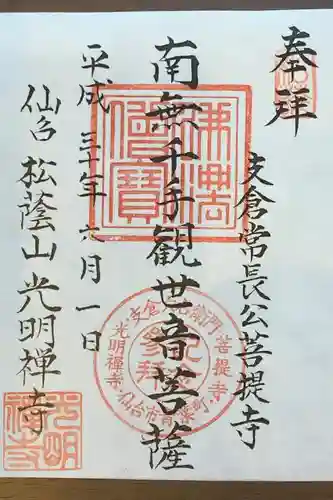 奉拝
支倉常長公菩提寺
南無千手観世音菩薩
平成三十年六月一日
仙台 松蔭山 光明禅寺
佛法僧寳
支倉六右衛門 菩提寺
光明禅寺・仙台市青葉町
参拝記念
光明禅寺